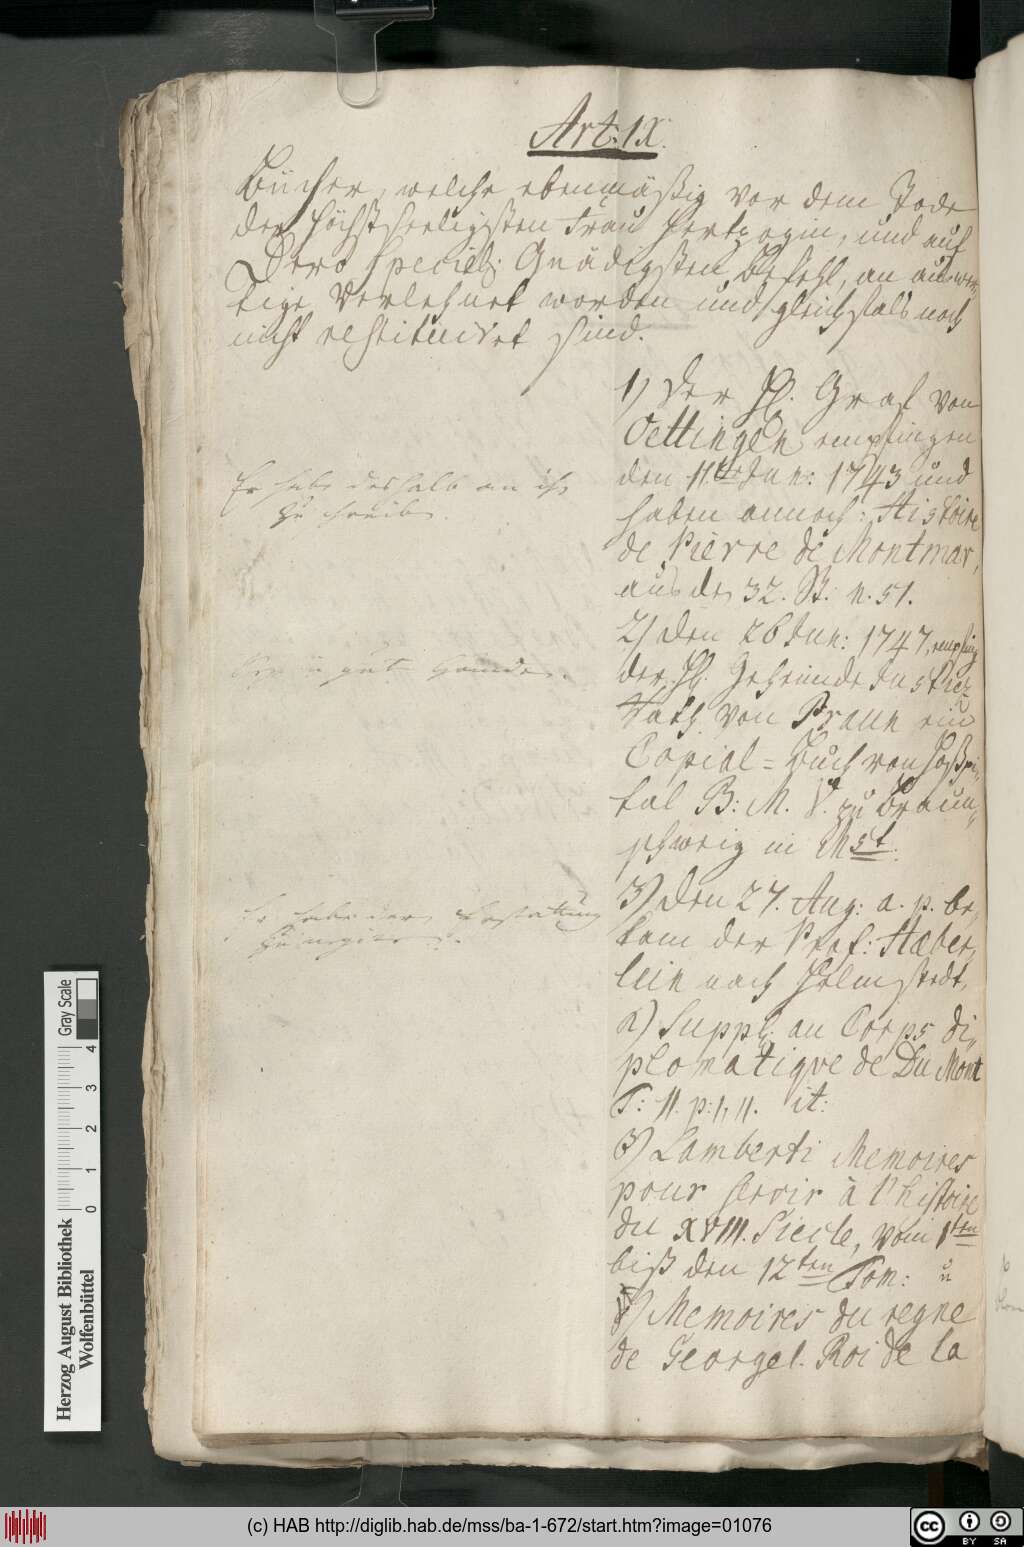 Art: IX.
Bücher, welche ebenmäßig vor dem Tode
der Höchstseeligsten Frau Hertzogin, und auf
Dero speciel: Gnädigsten Befehl, an auswer-
tige verlehnet worden und gleichfals noch
nicht restituiret sind.
1) Der H. Graf von
Oettingen empfingen
den 11ten Jun: 1743 und
haben annoch: Histoire
de Pierre de Montmar,
aus der 32. B: n. 51.
Er habe deshalb an ihn
zu schreiben.
2) Den 26 Jun: 1747, empfing
der H. Geheimde Justiz-
Rath von Praun ein
Copial-Buch von Hosspi-
tal B: M. V. zu Braun-
schweig in Mst.
3) Den 27. Aug: a. p. be-
kam der Prof: Hæber-
lein nach Helmstedt,
Er habe deren Erstattung
zu
α) Suppl: au Corps di-
plomatique de Du Mont
T: II. p: I, II. it:
β) Lamberti Memoires
pour servir à l'histoire
du XVIII. Siecle, vom 1ten
biß den 12ten Tom: u
γ) Memoires du regne
de George I. Roi de la
Herzog August Bibliothek
Wolfenbüttel
0 1 2 3 4
Gray Scale
(c) HAB http://diglib.hab.de/mss/ba-1-672/start.htm?image=01076
cc BY SA